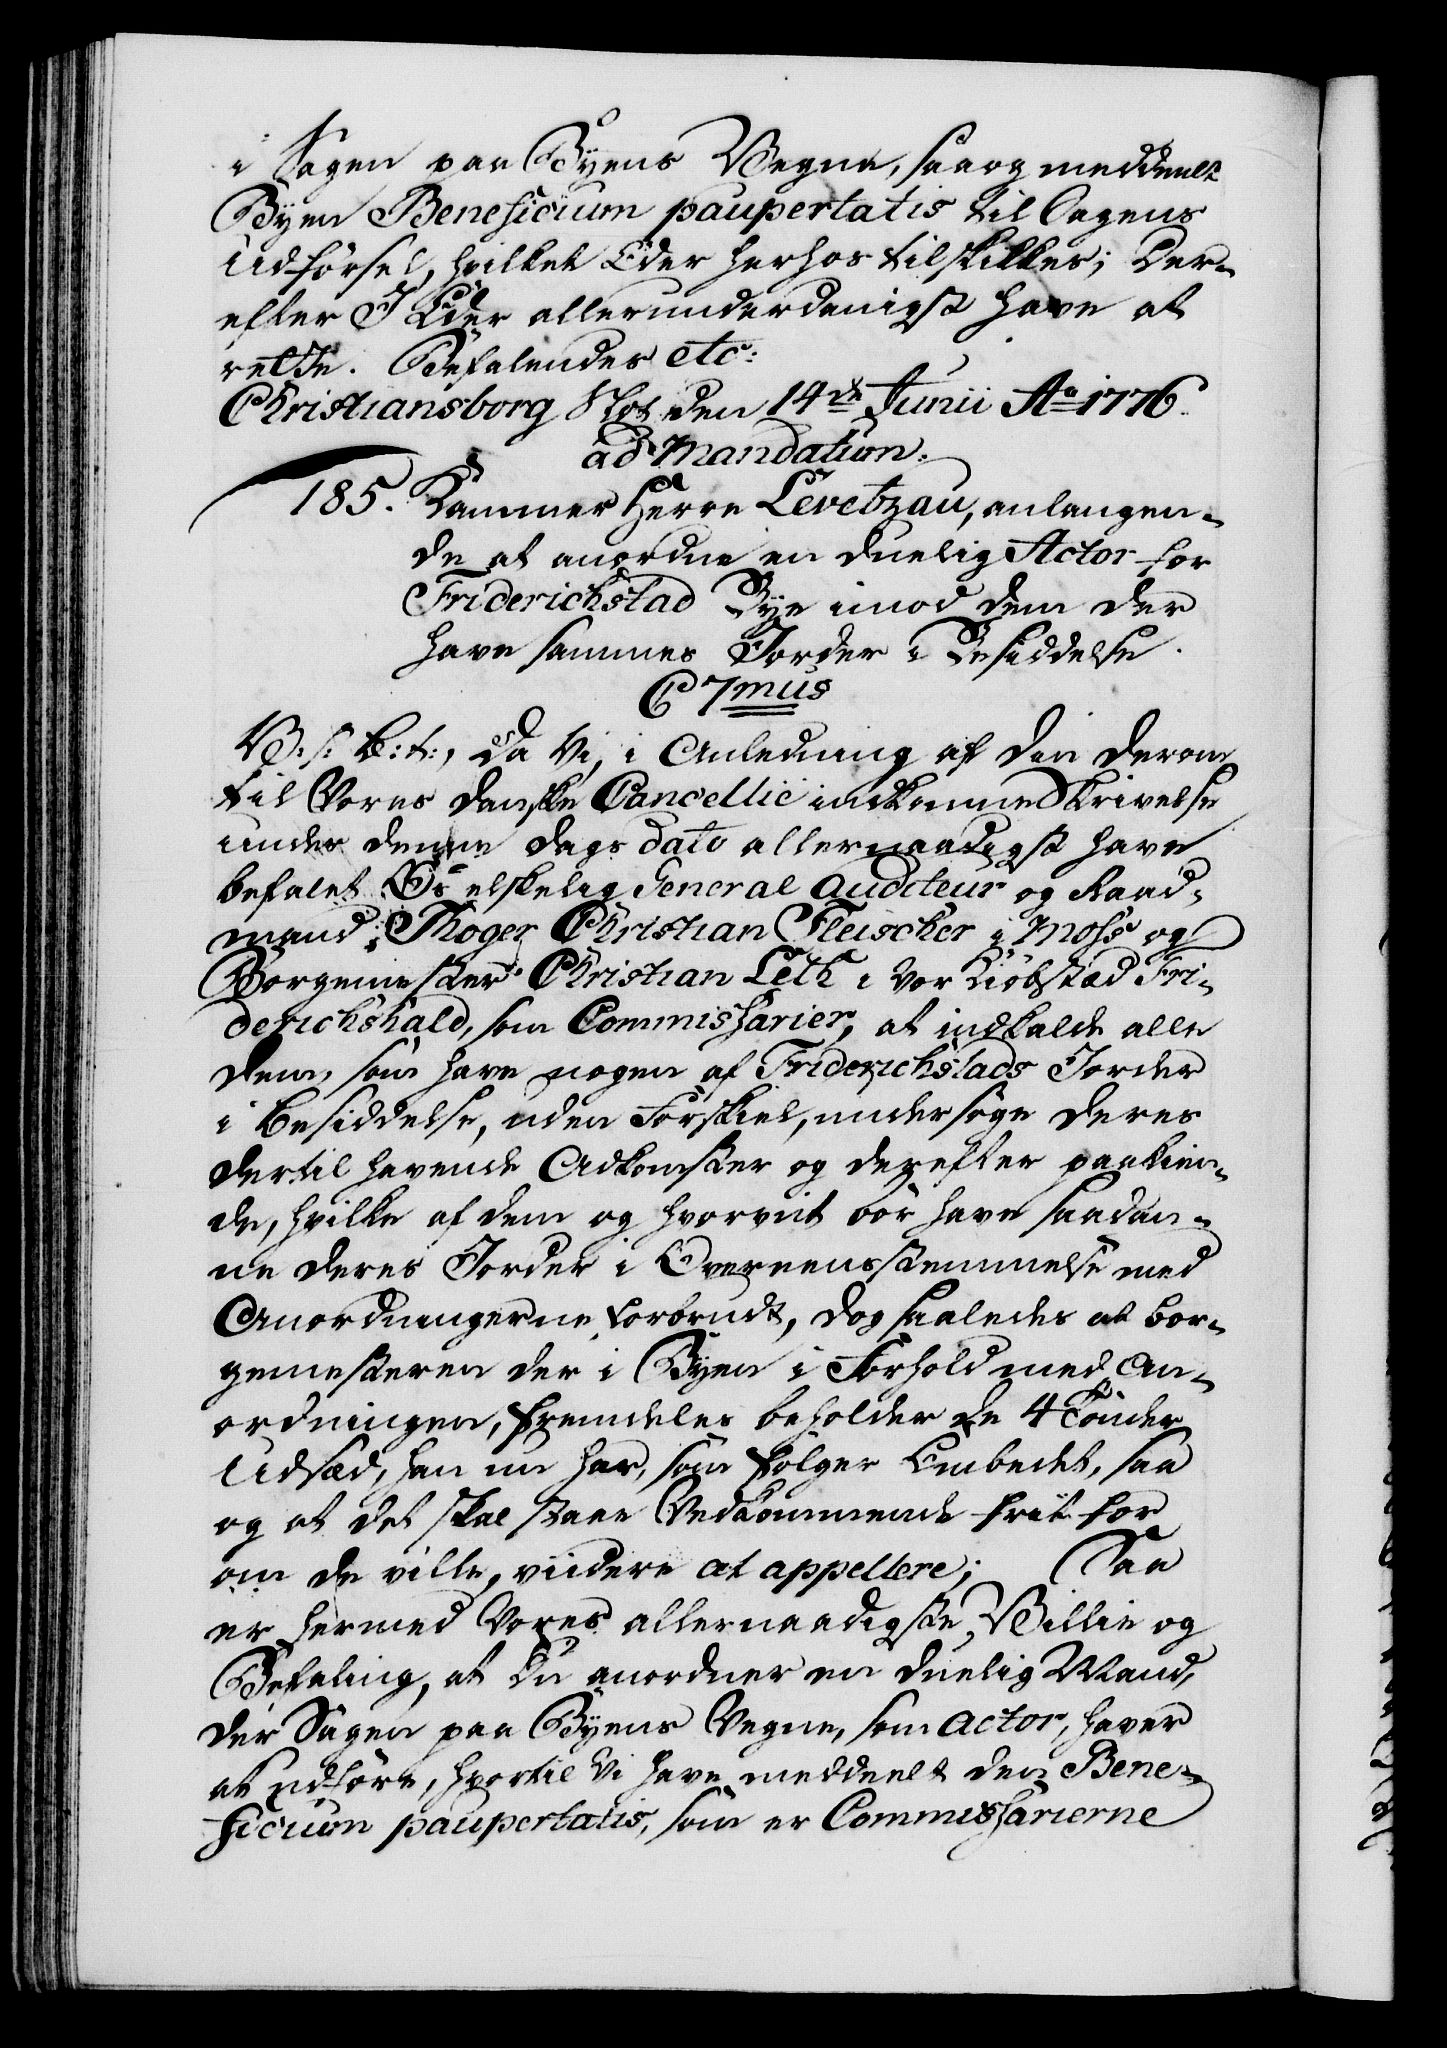 i Sagen paa Byens Vegne, saa og meddeelt
Byen Beneficium paupertatis til Sagens
Udførsel, hvilket Eder herhos tilskikkes; Der-
efter I Eder allerunderdanigst have at
rette. Befalendes etc:
Christiansborg Slot den 14de Junii Ao 1776.
ad Mandatum.
185. Kammer Herre Levetzau, anlangen-
de at anordne en duelig Actor for
Friderichstad Bye imod dem der
have sammes Jorder i Besiddelse.
C 7mus
V: s: B: t:, Da Vi, i Anledning af din derom
til Vores danske Cancellie indkomne Skrivelse
under denne Dags dato allernaadigst have
befalet Os elskelig General Auditeur og Raad-
mand Thoger Christian Fleischer i Moss og
Borgemester Christian Leth i vor Kiøbstæd Fri-
derichshald, som Commissarier, at indkalde alle
dem, som have nogen af Friderichstads Jorder
i Besiddelse, uden Forskiel, undersøge deres
dertil havende Adkomster og derefter paakien-
de, hvilke af dem og hvorvit bør have saadan-
ne deres Jorder i Overeensstemmelse med
Anordningerne forbrudt, dog saaledes at Bor-
gemesteren der i Byen i Forhold med An-
ordningen, fremdeles beholder de 4 Tønder
Udsæd, han nu har, som følger Embedet, saa
og at det skal staae Vedkommende frit for
om de ville, viidere at appellere; Saa
er hermed Vores allernaadigste Villie og
Befaling, at Du anordner en duelig Mand,
der Sagen paa Byens Vegne, som Actor, haver
at udføre, hvortil Vi have meddeelt den Bene-
ficium paupertatis, som er Commissarierne